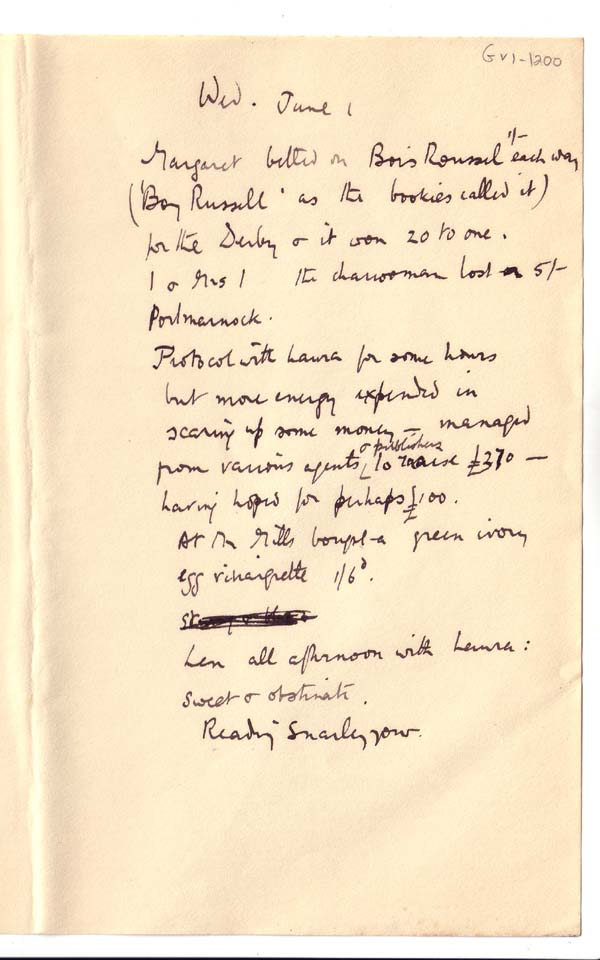 GV1-1200
Wed. June 1
Margaret betted on Bois Roussel 1/- each way
('Boy Russell' as the bookies called it)
for the Derby & it won 20 to one.
I & Mrs J the charwoman lost 5/-
Portmarnock.
Protocol with Laura for some hours
but more energy expended in
scaring up some money – managed
from various agents & publishers to raise £370 –
having hoped for perhaps £100.
At Mr Mills bought a green ivory
egg vinaigrette 1/6d.
Len all afternoon with Laura:
sweet & obstinate.
Reading Snarleyyow.